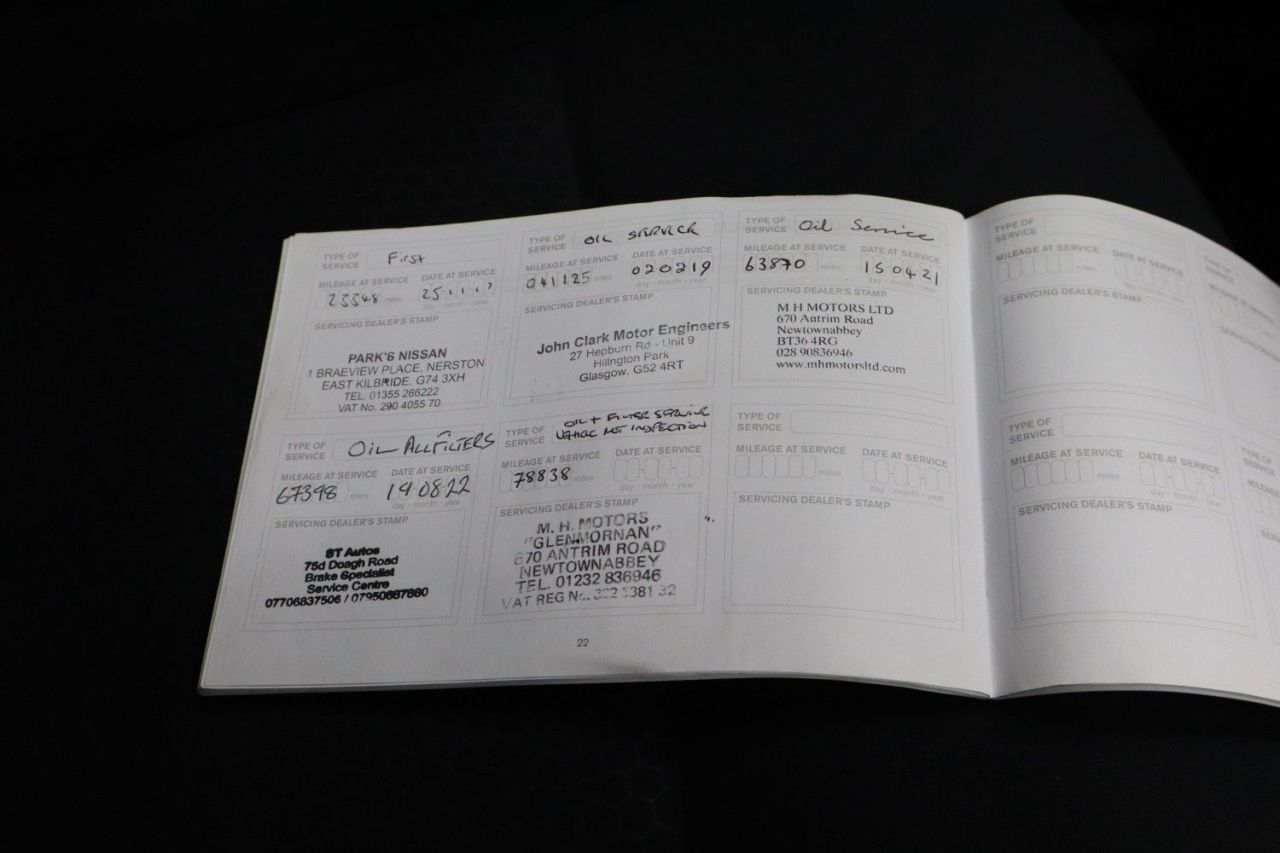 TYPE OF SERVICE First
MILEAGE AT SERVICE DATE AT SERVICE
miles
day - month - year
SERVICING DEALER'S STAMP
PARK'S NISSAN
1 BRAEVIEW PLACE, NERSTON
EAST KILBRIDE. G74 3XH
TEL. 01355 266222
VAT No. 290 4055 70
TYPE OF SERVICE OIL SERVICE
MILEAGE AT SERVICE DATE AT SERVICE
041125 miles 020219
day - month - year
SERVICING DEALER'S STAMP
John Clark Motor Engineers
27 Hepburn Rd - Unit 9
Hillington Park
Glasgow. G52 4RT
TYPE OF SERVICE Oil Service
MILEAGE AT SERVICE DATE AT SERVICE
63870 miles 150421
day - month - year
SERVICING DEALER'S STAMP
M H MOTORS LTD
670 Antrim Road
Newtownabbey
BT36 4RG
028 90836946
www.mhmotorsltd.com
TYPE OF SERVICE OIL ALL FILTERS
MILEAGE AT SERVICE DATE AT SERVICE
67398 miles 19.08.22
day - month - year
SERVICING DEALER'S STAMP
ST Autos
75d Doagh Road
Brake Specialist
Service Centre
07706837506 / 07950887880
TYPE OF SERVICE OIL + FILTER SERVICE
VEHICLE MOT INSPECTION
MILEAGE AT SERVICE DATE AT SERVICE
78838 miles
day - month - year
SERVICING DEALER'S STAMP
M. H. MOTORS
"GLENMORNAN"
670 ANTRIM ROAD
NEWTOWNABBEY
TEL. 01232 836946
VAT REG No.
TYPE OF SERVICE
MILEAGE AT SERVICE DATE AT SERVICE
miles
day - month - year
SERVICING DEALER'S STAMP
22
TYPE OF SERVICE
MILEAGE AT SERVICE DATE AT SERVICE
miles
day - month - year
SERVICING DEALER'S STAMP
TYPE OF SERVICE
MILEAGE AT SERVICE DATE AT SERVICE
miles
day - month - year
SERVICING DEALER'S STAMP